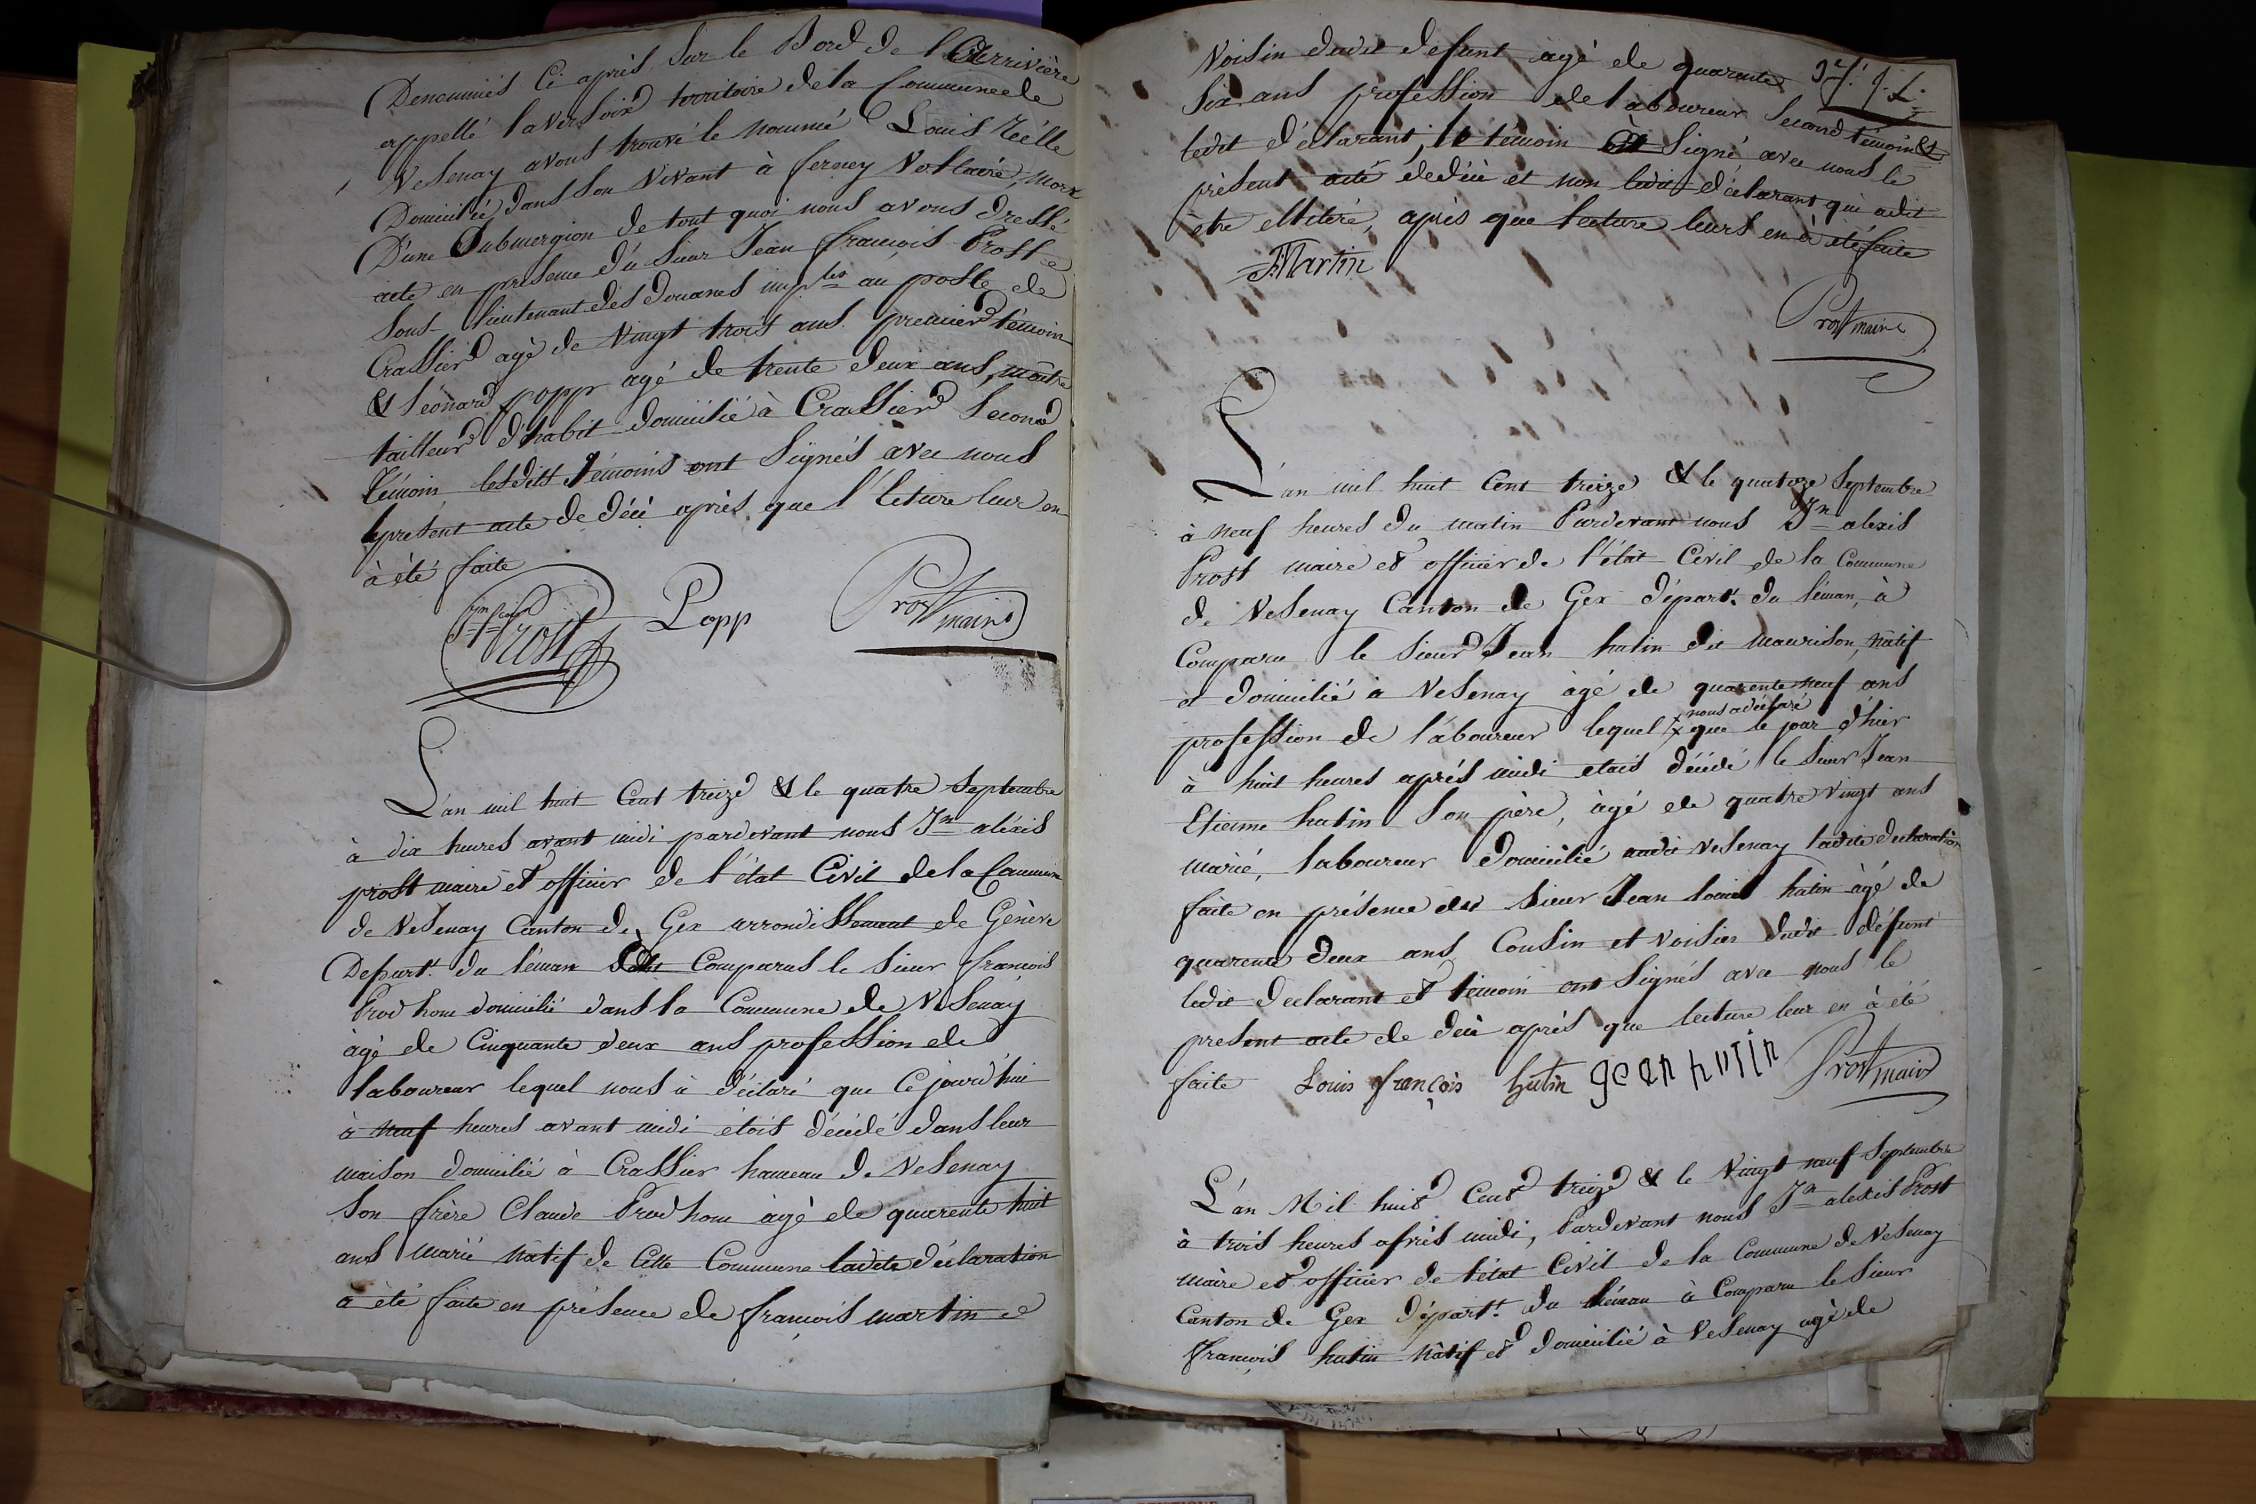 Denommés Ci après Sur le Bord de l'
appellé laversoix territoire de la Commune de
Vesenay avons trouvé le nommé Louis
Domicilié dans Son Vivant à ferney Voltaire, Mort
D'une Submergion de tout quoi nous avons dressé
acte en présence du Sieur Jean françois Prost
Sous-lieutenant des douanes imples au poste de
Crassier agé de Vingt trois ans premier témoin
& léonard popp agé de trente deux ans, maître
tailleur d'habit domicilié à Crassier Second
témoin lesdits témoins ont Signés avec nous
le présent acte de décè après que l'lecture leur en
à été faite
Prost Popp Prost maire
L'an mil huit Cent treize & le quatre Septembre
à dix heures avant midi pardevant nous Jn aléxis
prost maire et officier de l'état Civil de la Commune
de Vesenay Canton de Gex arrondissement de Genève
Depart.t du léman Comparus le Sieur françois
Prodhom domicilié dans la Commune de Vesenay
âgé de Cinquante deux ans profession de
laboureur lequel nous à déclaré que Ce jourd'hui
à neuf heures avant midi étois décédé dans leur
maison domicilié à Crassier hameau de Vesenay
Son frère Claude Prodhom âgé de quarente huit
ans marié natif de Cette Commune ladite déclaration
a été faite en présence de françois martin
Voisin dudit defunt agé de quarente
Six ans profession de laboureur Second témoin &
ledit déclarant, le témoin à Signé avec nous le
présent acte dedécè et non ledit déclarant qui adit
être elliteré, après que lecture leurs en à été faite
Martin
Prost maire
L'an mil huit Cent treize & le quatorze Septembre
à neuf heures du matin Pardevant nous Jn alexis
Prost maire et officier de l'état Civil de la Commune
de Vesenay Canton de Gex départ.t du léman, à
Comparu le Sieur Jean hutin dit maurison, natif
et domicilié à Vesenay âgé de quarente neuf ans
nous a déclaré
profession de laboureur lequel que le jour d'hier
à huit heures après midi etais décédé le Sieur Jean
Etienne hutin Son père, âgé de quatre Vingt ans
marié, laboureur domicilié audit Vesenay ladite declaration
faite en présence du Sieur Jean louis hutin âgé de
quarente deux ans Cousin et Voisin dudit défunt
ledit declarant et témoin ont Signés avec nous le
present acte de décè après que lecture leur en à été
faite Louis françois hutin jean hutin Prost maire
L'an Mil huit Cent treize & le Vingt neuf Septembre
à trois heures après midi, Pardevant nous Jn alexis Prost
maire et officier de l'état Civil de la Commune de Vesenay
Canton de Gex départ.t du léman à Comparu le Sieur
François hutin natif et domicilié à Vesenay agé de